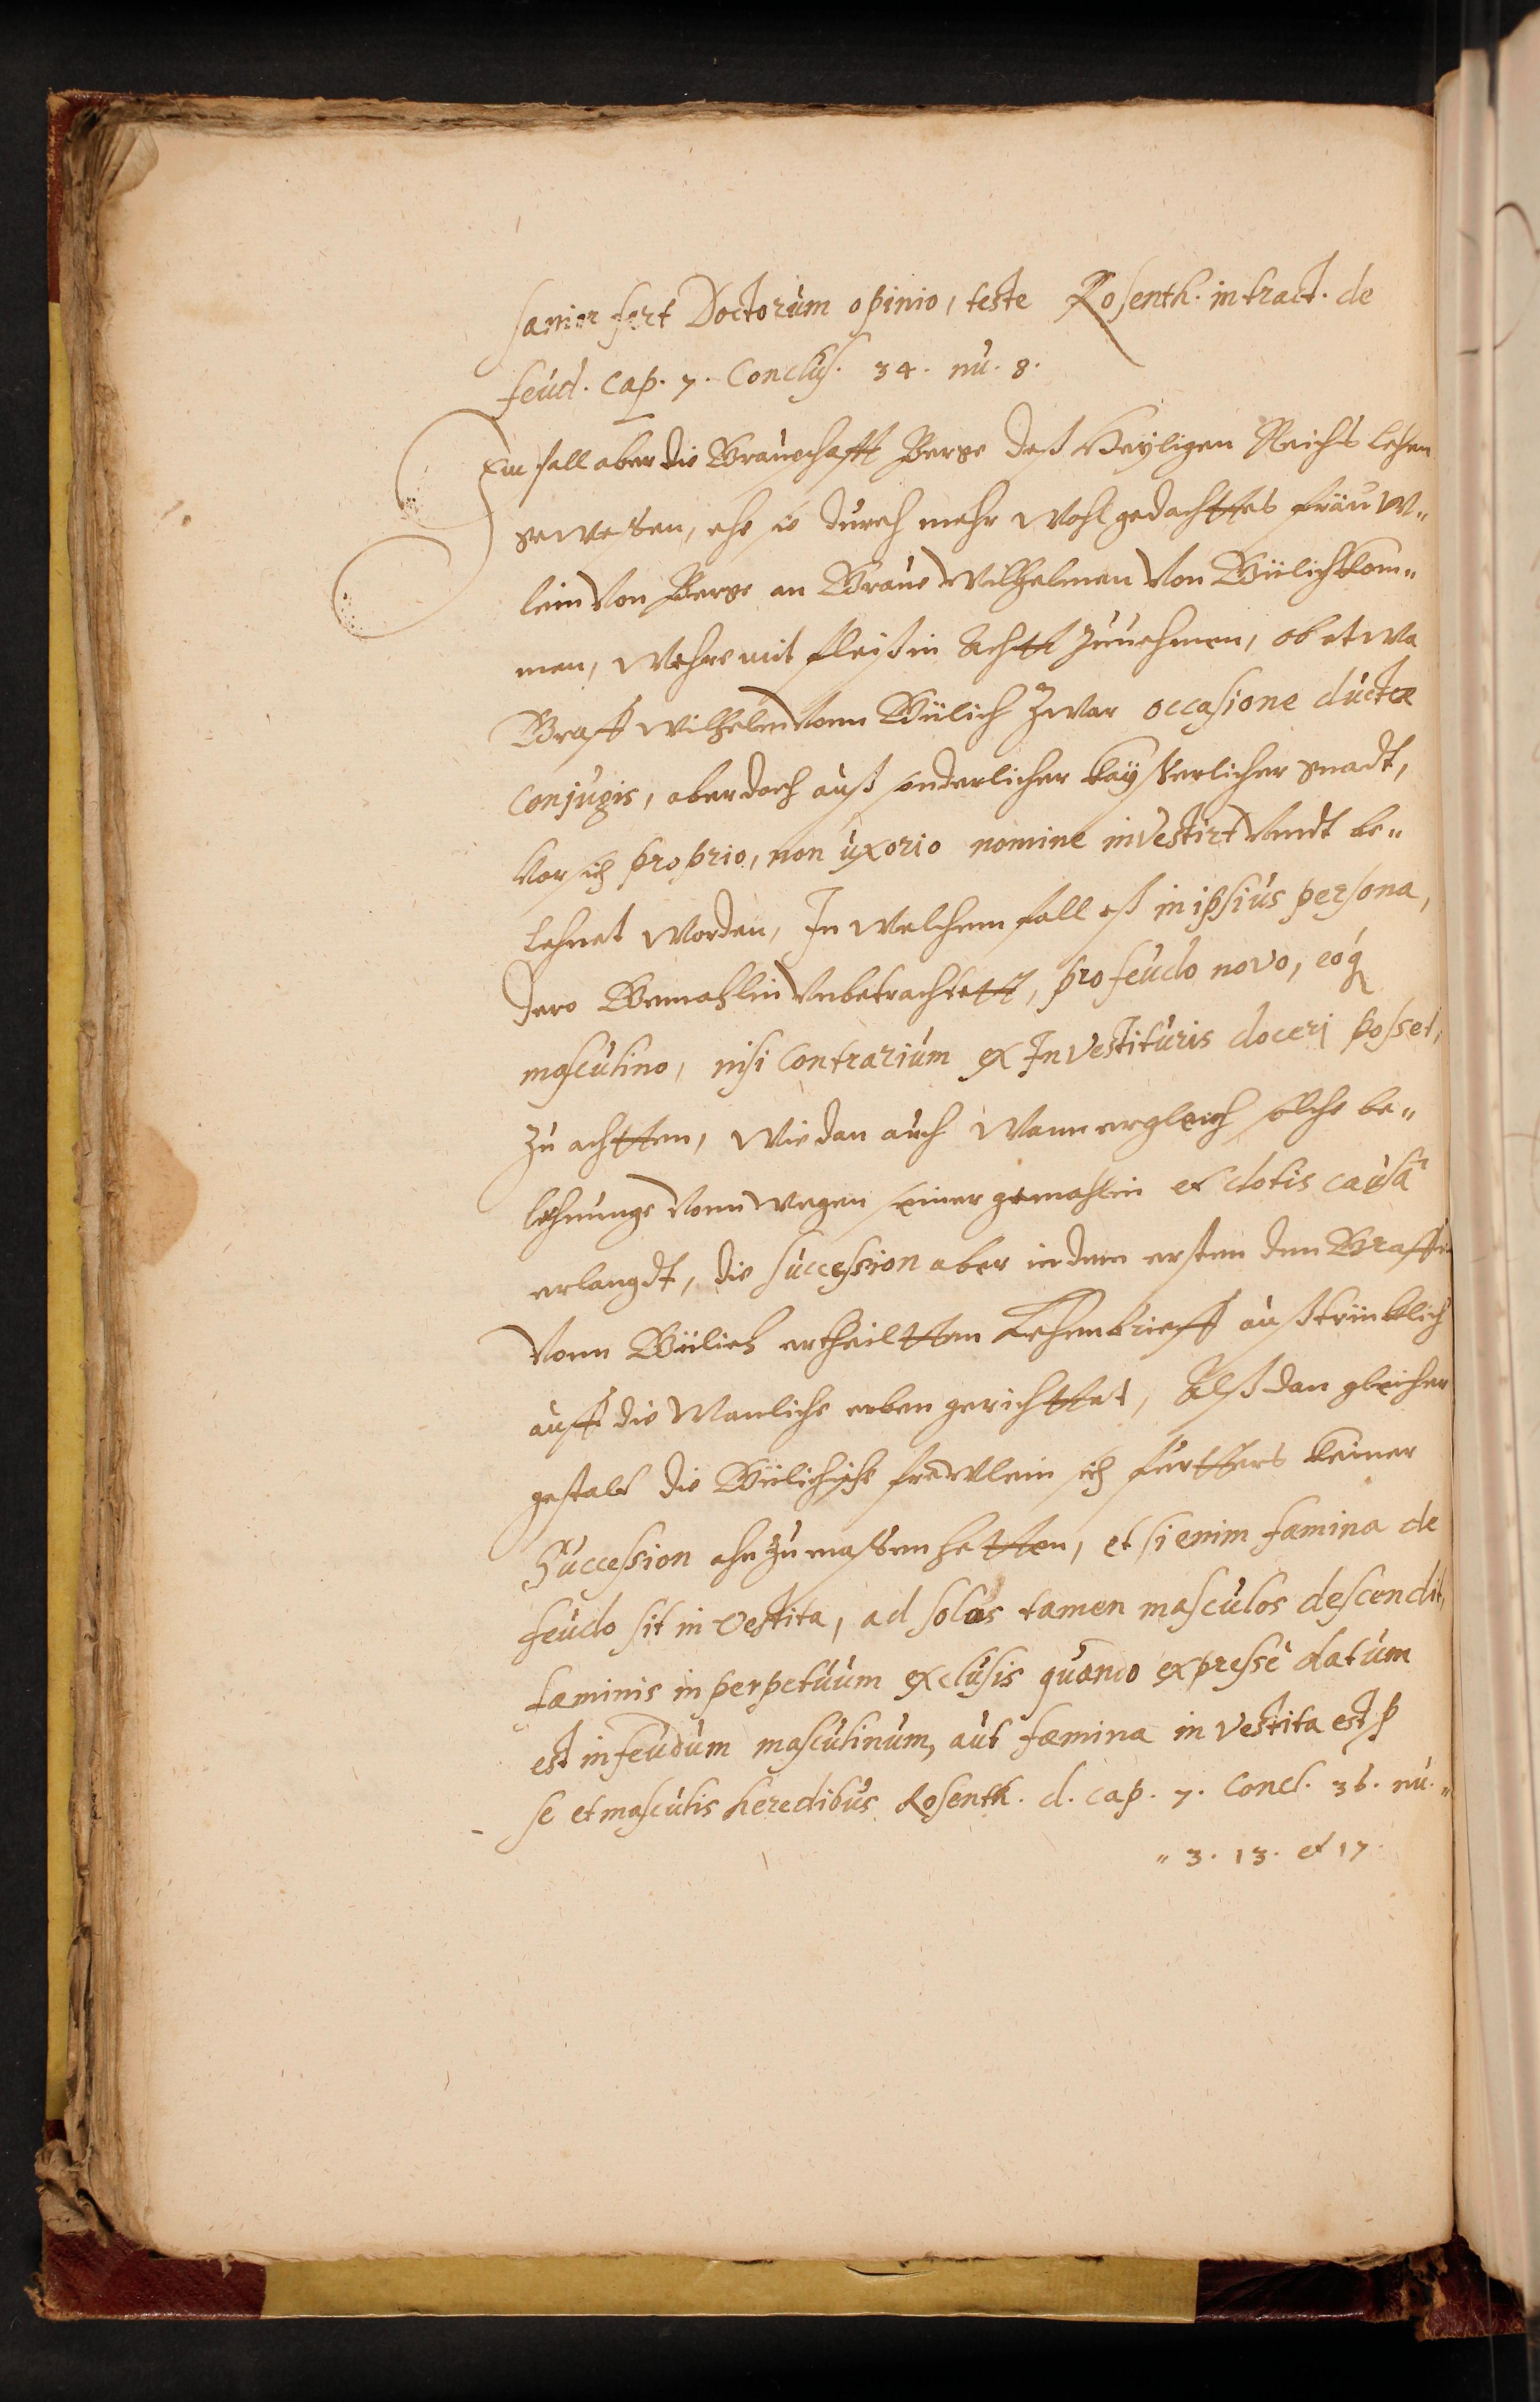 sanior fert Doctorum opinio, teste Rosenth. in tract. de
feud. cap. 7. Conclus. 34. nu. 8.
Im fall aber die Graueschafft Berge deß Heyligen Reichs Lehen
gewesen, ehe sie durch mehr wohlgedachttes fräuw„
lein von Berge an Graue Wilhelmen von Gülich kom„
men, wehre mit fleiß in Achtt zunehmen, ob etwa
Graff Wilhelm vonn Gülich zwar occasione ductæ
conjugis, aber doch auß sonderlicher Kayserlicher gnadt,
vor sich proprio, non uxorio nomine investirt vnndt be„
lehnet worden, In welchem fall eß in ipsius persona,
dero Gemahlin vnbetrachtett, pro feudo novo, eoq
masculino, nisi contrarium ex Investituris doceri posset,
zu achtten, wie dan auch wann er gleich solche be„
lehnunge vonn wegen seiner gemahlin et dotis causa
erlangdt, die succession aber in dem ersten den Graffen
vonn Gülich ertheiltten Lehenbrieff außtrücklich
auff die Manliche erben gerichttet, Alß dan gleicher
gestalt die Gülichische frewlein sich furtters keiner
Succession ahnzumassen hetten, et si enim fæmina de
feudo sit investita, ad solos tamen masculos descendit,
fæminis in perpetuum exclusis quando expressè datum
est in feudum masculinum, aut fæmina investita est p
se et masculis heredibus Rosenth. d. cap. 7. Concl. 36. nu. „
„ 3. 13. et 17.